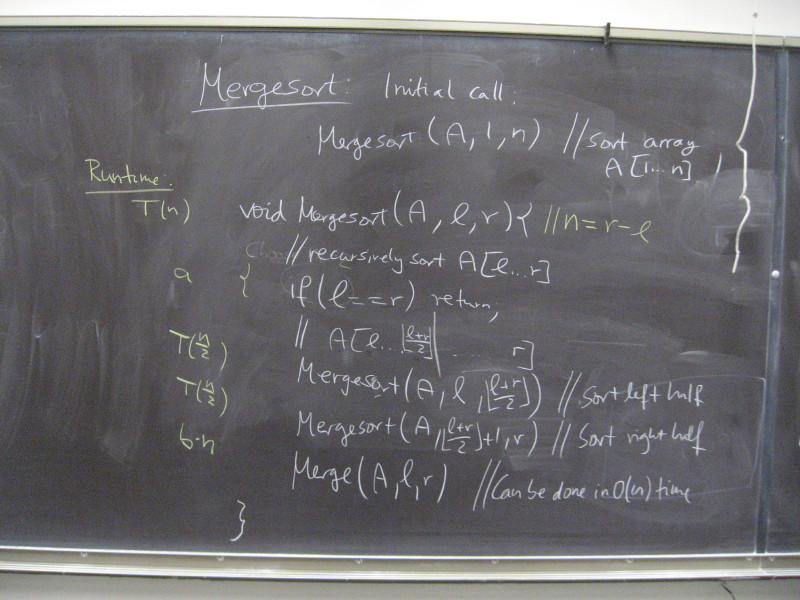 Mergesort: Initial call:
Mergesort (A, 1, n) //sort array
A[1...n]
Runtime:
T(n) void Mergesort(A, l, r){ //n=r-l
//recursively sort A[l...r]
a { if(l==r) return;
// A[l...⌊(l+r)/2⌋| ... r]
T(n/2) Mergesort(A, l, ⌊(l+r)/2⌋) // Sort left half
T(n/2) Mergesort(A, ⌊(l+r)/2⌋+1, r) // Sort right half
b·n Merge(A, l, r) //Can be done in O(n) time
}